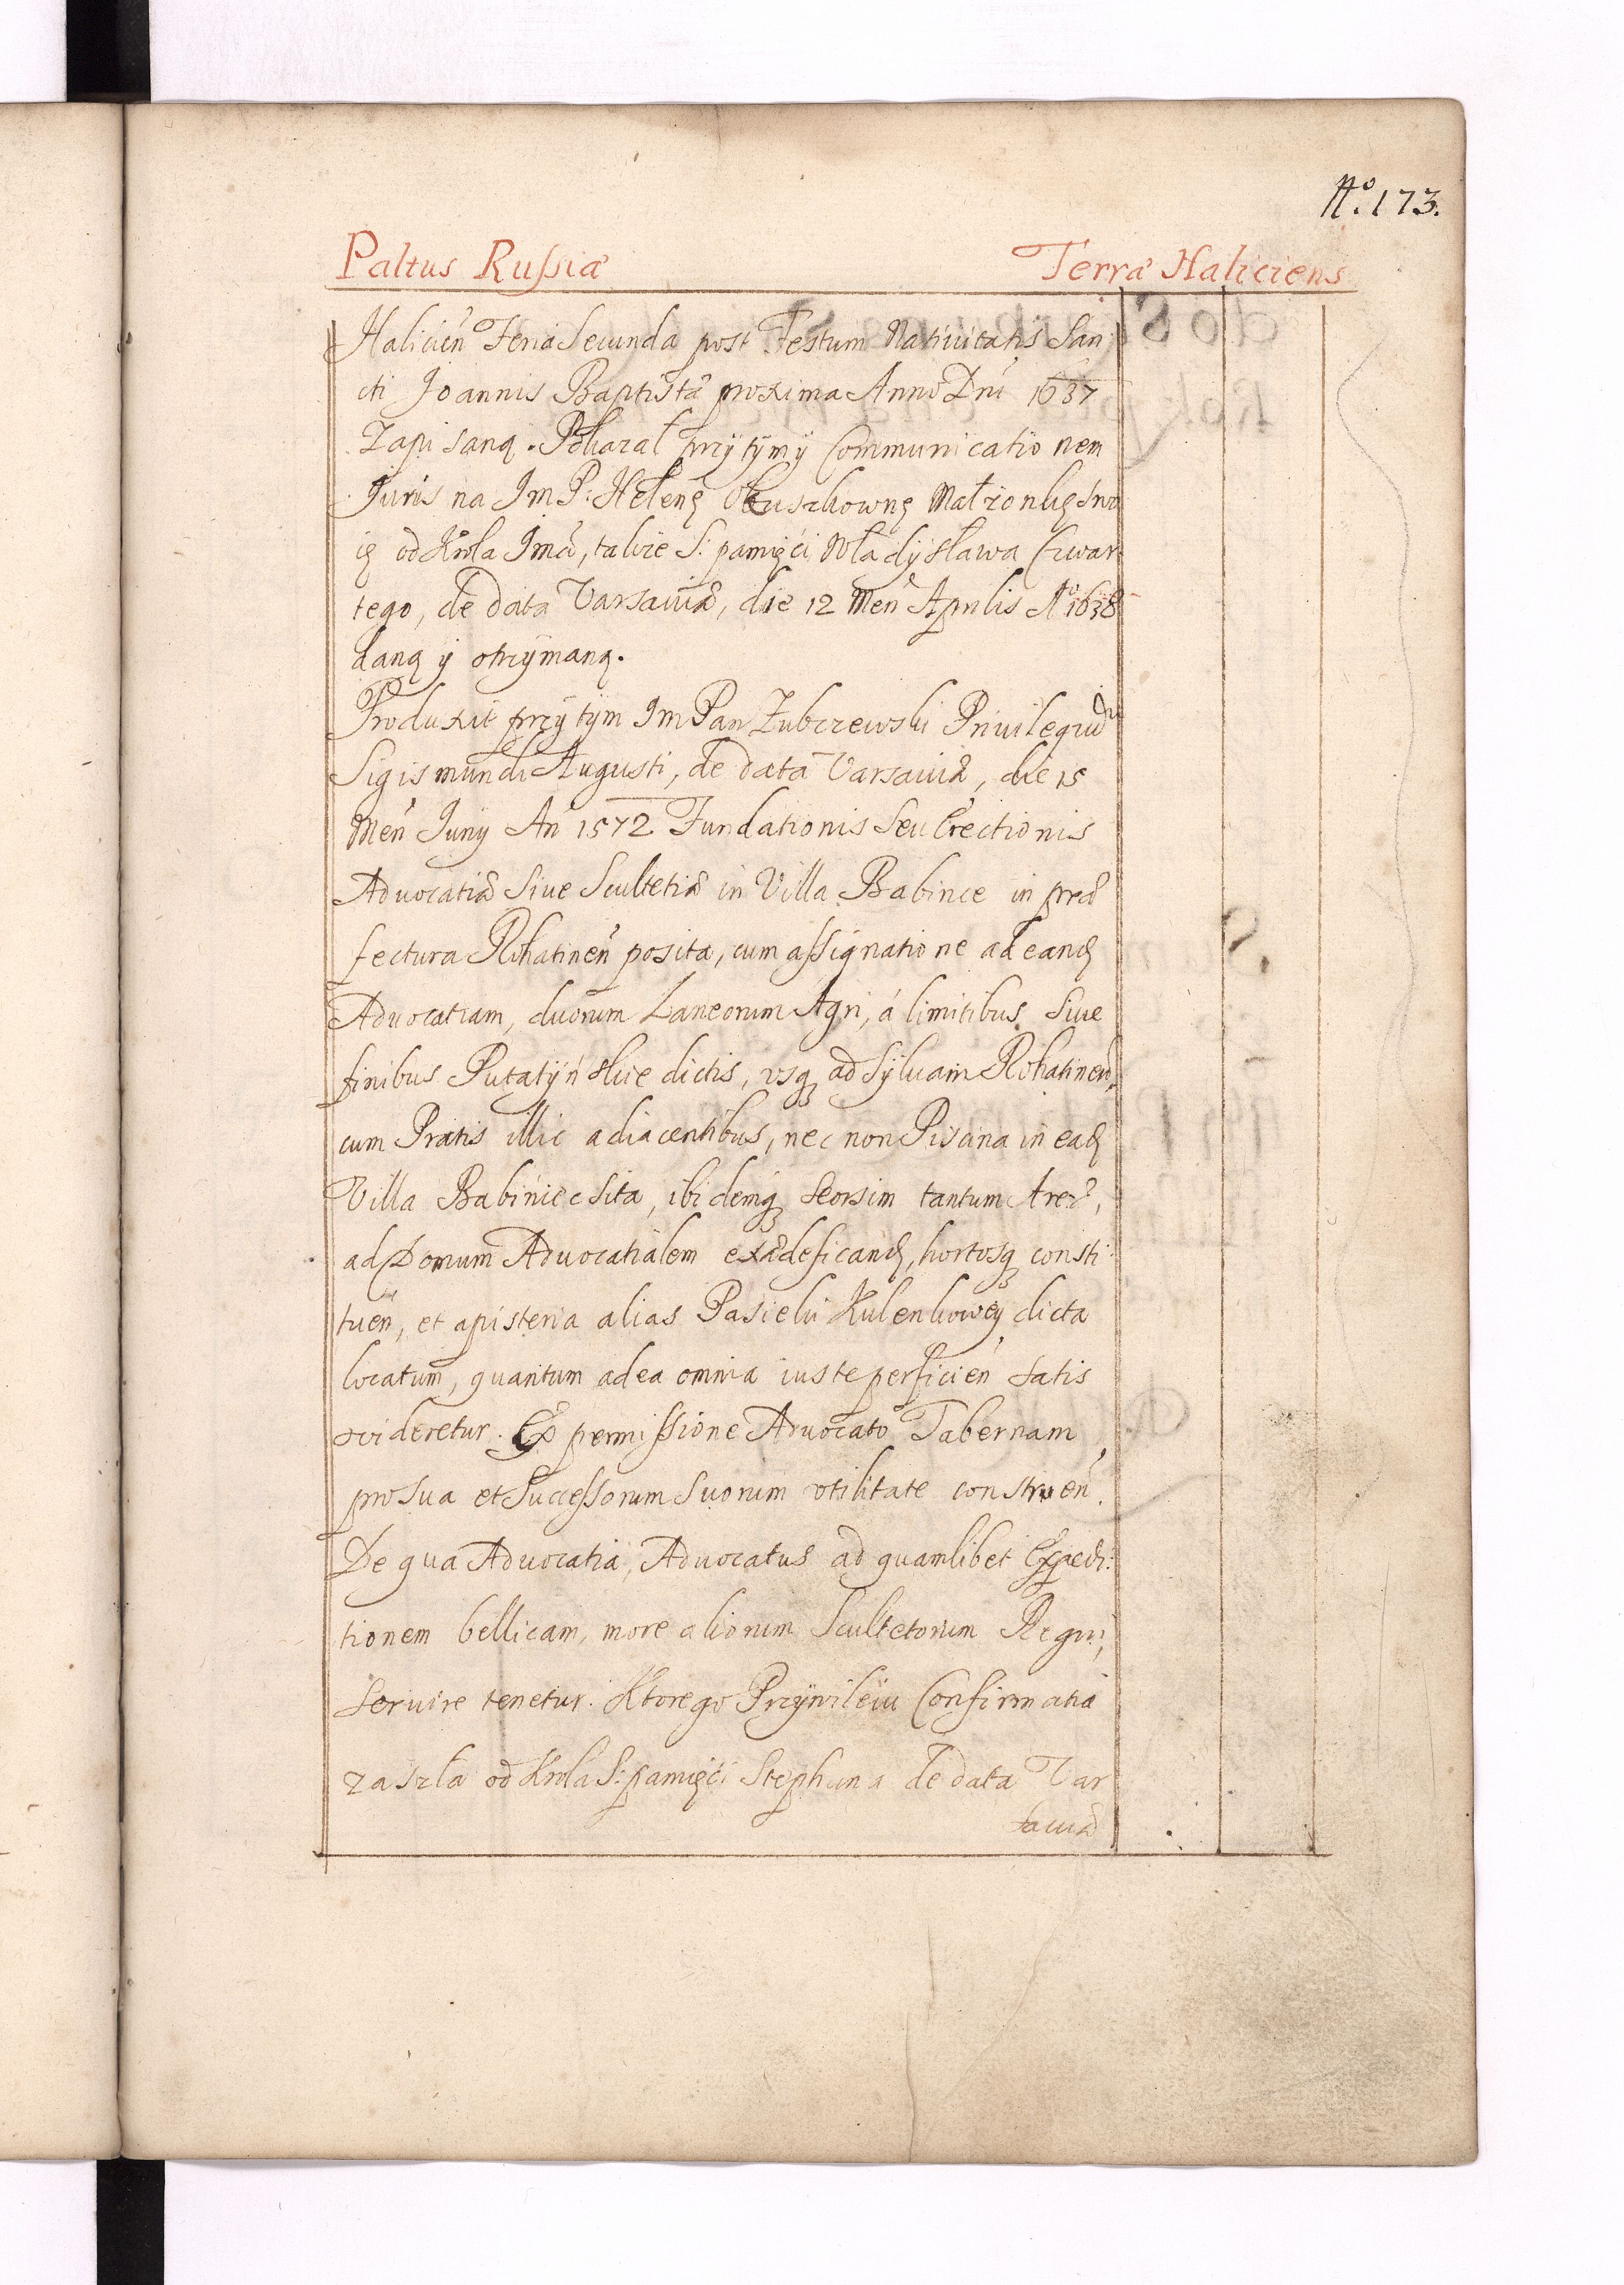 No. 173.
Paltus Russiæ Terræ Haliciens
Halicien̄ Feria Secunda post Festum Natiuitatis San
cti Joannis Baptistæ proxima Anno Dni 1637
Zapisaną. Pokazał przytÿmÿ Communicationem
Juris na Im P: Helenę Małżonkę swo
ię od Krola Imci, także S: pamięci Władÿsława Czwar
tego, de data Varsauiæ, die 12 Men̄ Aprilis Aº 1638
daną ÿ otrzÿmaną.
Produxit przÿtÿm Im Pan Zubczewski Priuilegiũ
Sigismundi Augusti, de data Varsauiæ, die 15
Men̄ Junÿ An̄ 1572 Fundationis Seu Erectionis
Aduocatiæ Siue Scultetiæ in Villa Babince in præ
fectura Rohatinen̄ posita, cum assignatione ad eand
Aduocatiam, duorum Laneorum Agri, á limitibus Siue
finibus Putatÿńskie dictis, vsq ad Sÿluam Rohatinen̄,
cum Pratis illic adiacentibus, nec non Piscina in ead
Villa Babiniec sita, ibidemq seorsim tantum Areæ,
ad Domum Aduocatialem exædificand, hortosq consti
tuen̄, et apisteria alias Pasieki Kulenkowey dicta
locatum, quantum ad ea omnia iuste perficien̄ satis
videretur. Ex permissione Aduocato Tabernam
pro sua et Successorum Suorum vtilitate construen̄.
De qua Aduocatia, Aduocatus ad quamlibet Expedi:
tionem bellicam, more aliorum Scultetorum Regni,
seruire tenetur. Ktorego Przÿwileiu Confirmatia
zaszła od Krola S: pamięci Stephana de data Var
sauiæ